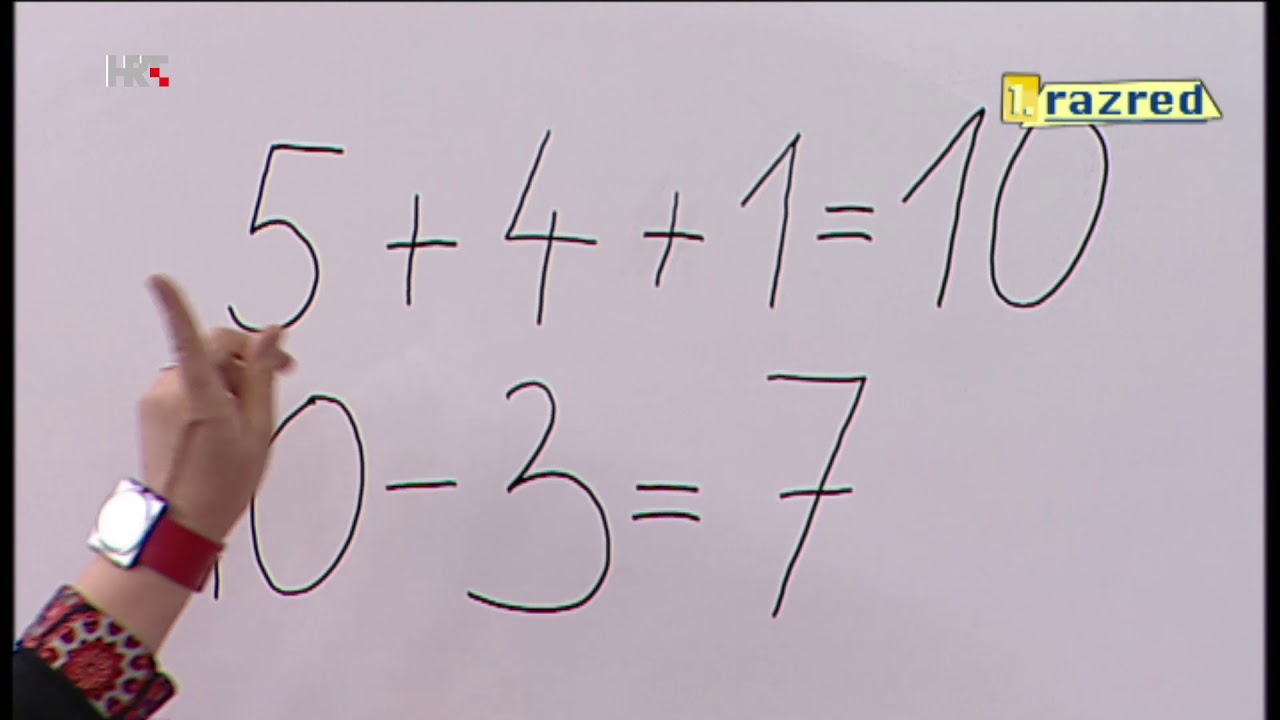 HRT
1. razred
5 + 4 + 1 = 10
10 - 3 = 7